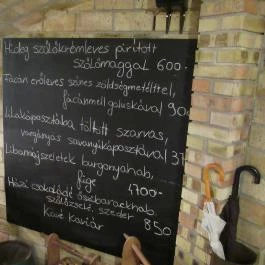 Hideg szőlőkrémleves pirított
szőlőmaggal 600.-
Fácán erőleves színes zöldségmetélttel,
fácánmell galuskával 90
Lilakáposztába töltött szarvas,
vargányás savanyúkáposztával 37
Libamájszeletek burgonyahab,
füge 4700-
Házi csokoládé őszibarackhab,
szőlőzselé, szeder
Kávé Kaviár 850